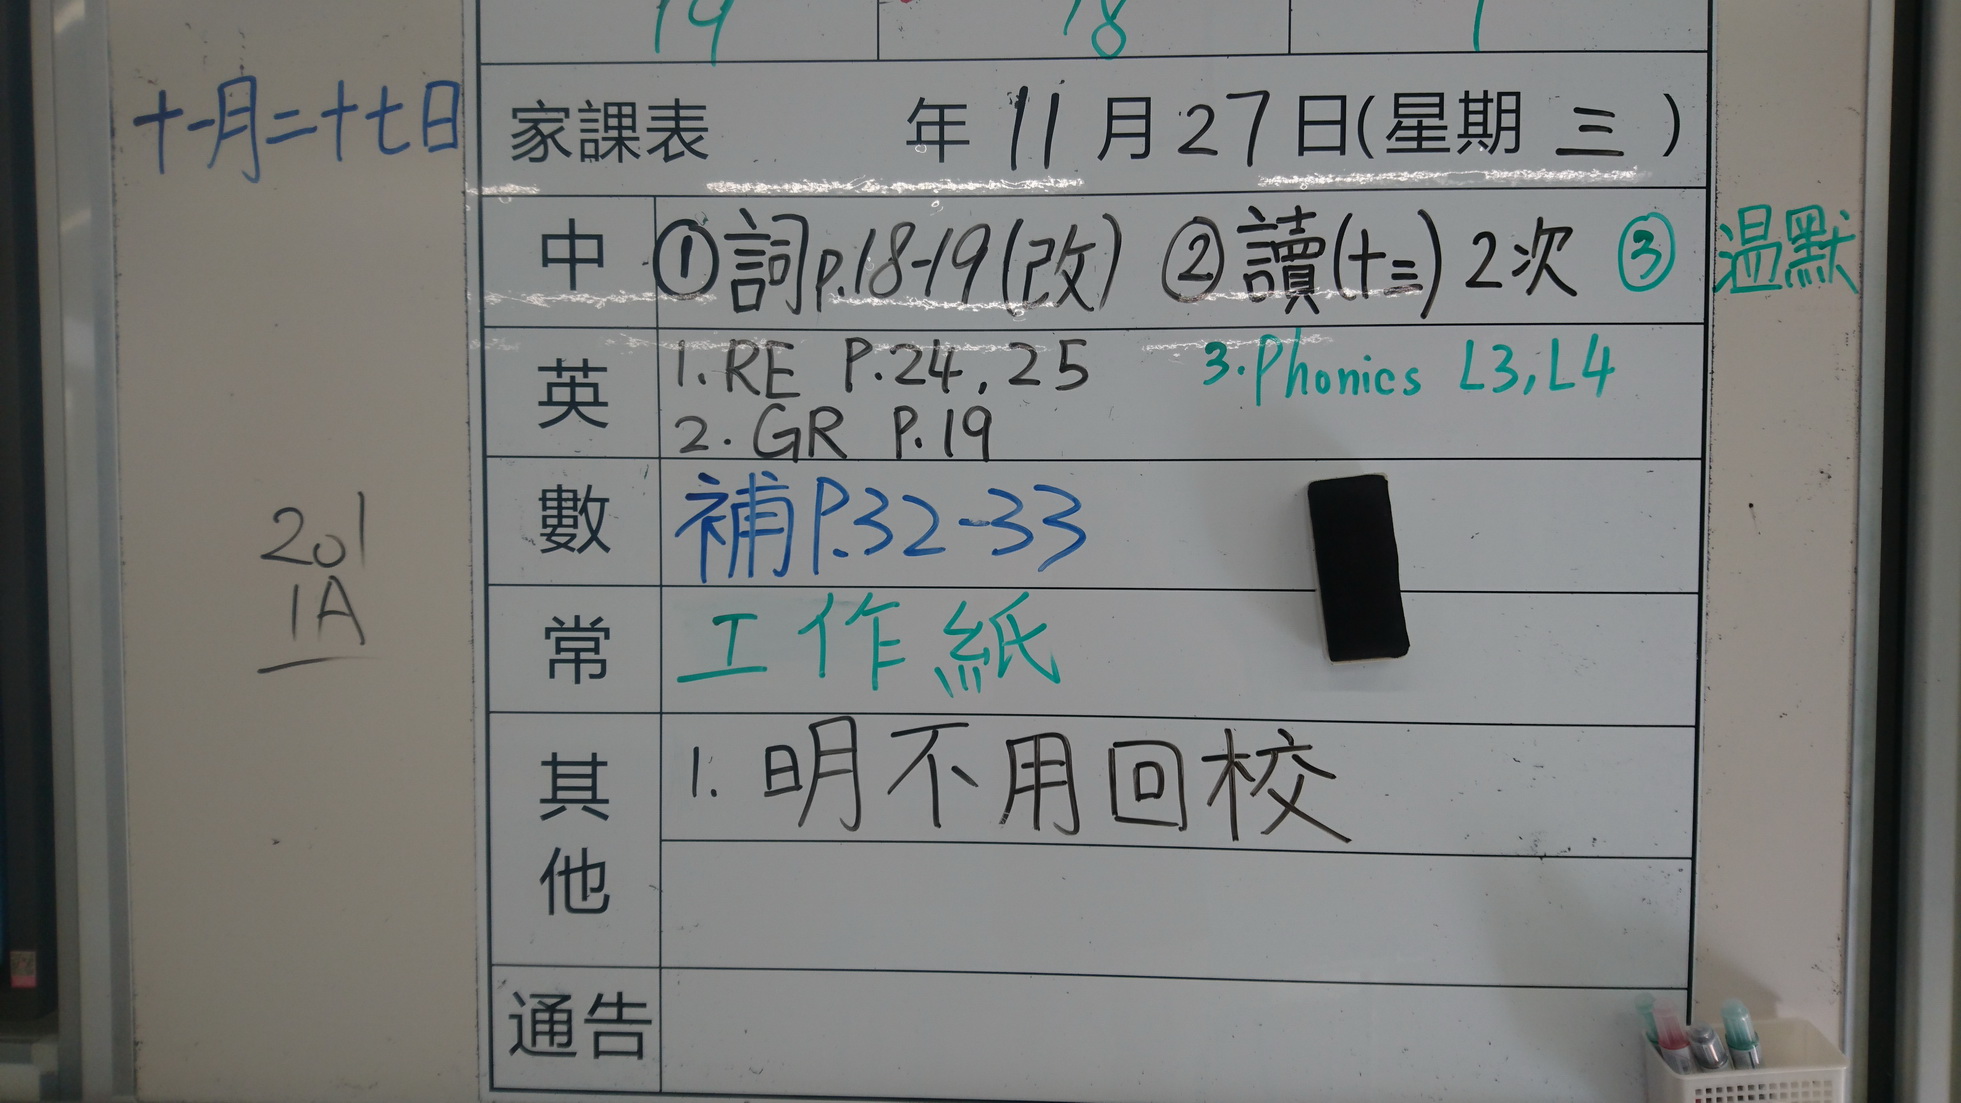 19 18 1
十一月二十七日
家課表 年 11 月 27 日(星期 三 )
中 ①詞p.18-19(改) ②讀(十三) 2次 ③ 温默
英 1.RE P.24,25 3.Phonics L3,L4
2.GR P.19
數 補P.32-33
201
1A
常 工作紙
其他 1.明不用回校
通告